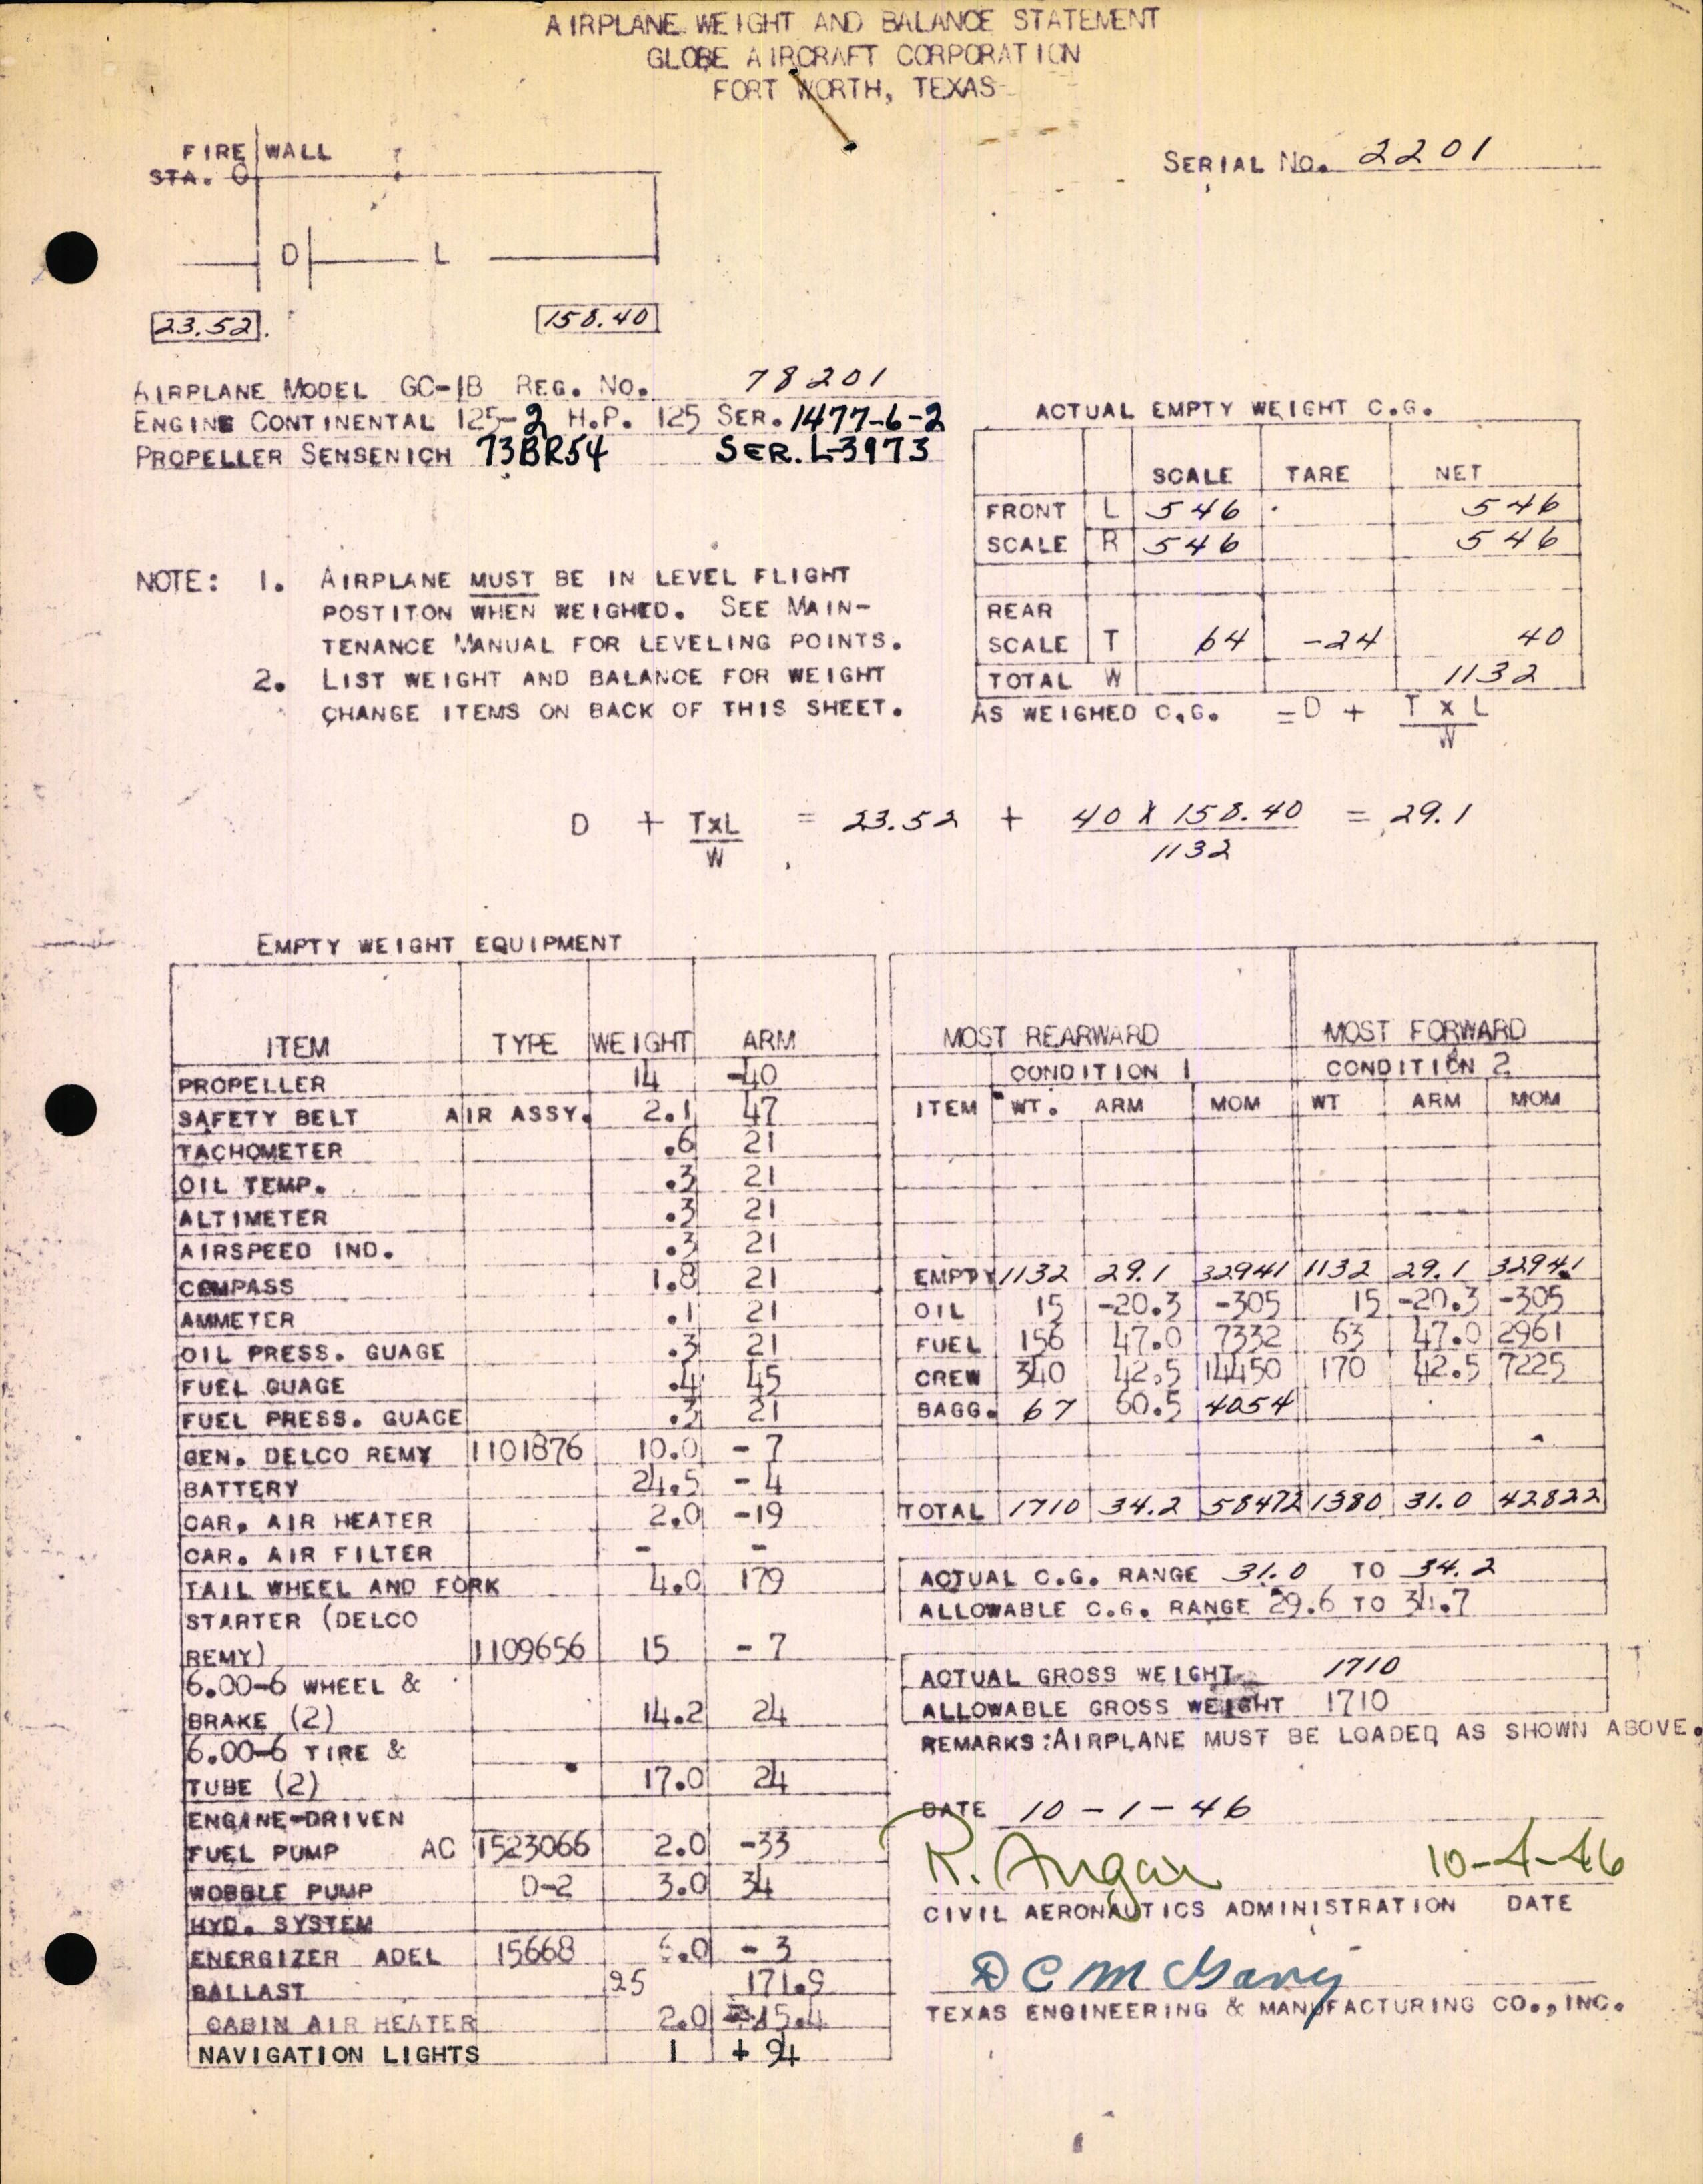 AIRPLANE WEIGHT AND BALANCE STATEMENT
GLOBE AIRCRAFT CORPORATION
FORT WORTH, TEXAS
FIRE WALL
STA. 0
SERIAL NO. 2201
D L
23.52 158.40
AIRPLANE MODEL GC-1B REG. NO. 78201
ENGINE CONTINENTAL 125-2 H.P. 125 SER. 1477-6-2
PROPELLER SENSENICH 73BR54 SER. L-3973
ACTUAL EMPTY WEIGHT C.G.
SCALE TARE NET
FRONT L 546 546
SCALE R 546 546
REAR
SCALE T 64 -24 40
TOTAL W 1132
AS WEIGHED C.G. = D + T x L
W
NOTE: 1. AIRPLANE MUST BE IN LEVEL FLIGHT
POSTITON WHEN WEIGHED. SEE MAIN-
TENANCE MANUAL FOR LEVELING POINTS.
2. LIST WEIGHT AND BALANCE FOR WEIGHT
CHANGE ITEMS ON BACK OF THIS SHEET.
D + TxL = 23.52 + 40 X 158.40 = 29.1
W 1132
EMPTY WEIGHT EQUIPMENT
ITEM TYPE WEIGHT ARM
PROPELLER 14 -40
SAFETY BELT AIR ASSY. 2.1 47
TACHOMETER .6 21
OIL TEMP. .3 21
ALTIMETER .3 21
AIRSPEED IND. .3 21
COMPASS 1.8 21
AMMETER .1 21
OIL PRESS. GUAGE .3 21
FUEL GUAGE .4 45
FUEL PRESS. GUAGE .3 21
GEN. DELCO REMY 1101876 10.0 - 7
BATTERY 24.5 - 4
CAR. AIR HEATER 2.0 -19
CAR. AIR FILTER - -
TAIL WHEEL AND FORK 4.0 179
STARTER (DELCO
REMY) 1109656 15 - 7
6.00-6 WHEEL &
BRAKE (2) 14.2 24
6.00-6 TIRE &
TUBE (2) 17.0 24
ENGANE-DRIVEN
FUEL PUMP AC 1523066 2.0 -33
WOBBLE PUMP D-2 3.0 34
HYD. SYSTEM
ENERGIZER ADEL 15668 6.0 - 3
BALLAST 25 171.9
CABIN AIR HEATER 2.0 -15.4
NAVIGATION LIGHTS 1 + 94
MOST REARWARD MOST FORWARD
CONDITION 1 CONDITION 2
ITEM WT. ARM MOM WT ARM MOM
EMPTY 1132 29.1 32941 1132 29.1 32941
OIL 15 -20.3 -305 15 -20.3 -305
FUEL 156 47.0 7332 63 47.0 2961
CREW 340 42.5 14450 170 42.5 7225
BAGG. 67 60.5 4054
TOTAL 1710 34.2 58472 1380 31.0 42822
ACTUAL C.G. RANGE 31.0 TO 34.2
ALLOWABLE C.G. RANGE 29.6 TO 34.7
ACTUAL GROSS WEIGHT 1710
ALLOWABLE GROSS WEIGHT 1710
REMARKS: AIRPLANE MUST BE LOADED AS SHOWN ABOVE.
DATE 10-1-46
R. 10-4-46
CIVIL AERONAUTICS ADMINISTRATION DATE
D C
TEXAS ENGINEERING & MANUFACTURING CO., INC.